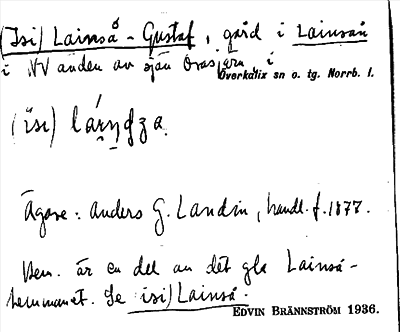 (Isi) Lainså - Gustaf, gård i Lainsån
i NV änden av sjön Orasjärv, i
Överkalix sn o. tg. Norrb. l.
(isi)
Ägare: Anders G. Landin, handl. f. 1877.
Hem. är en del av det gla Lainså-
hemmanet. Se isi) Lainså.
EDVIN BRÄNNSTRÖM 1936.